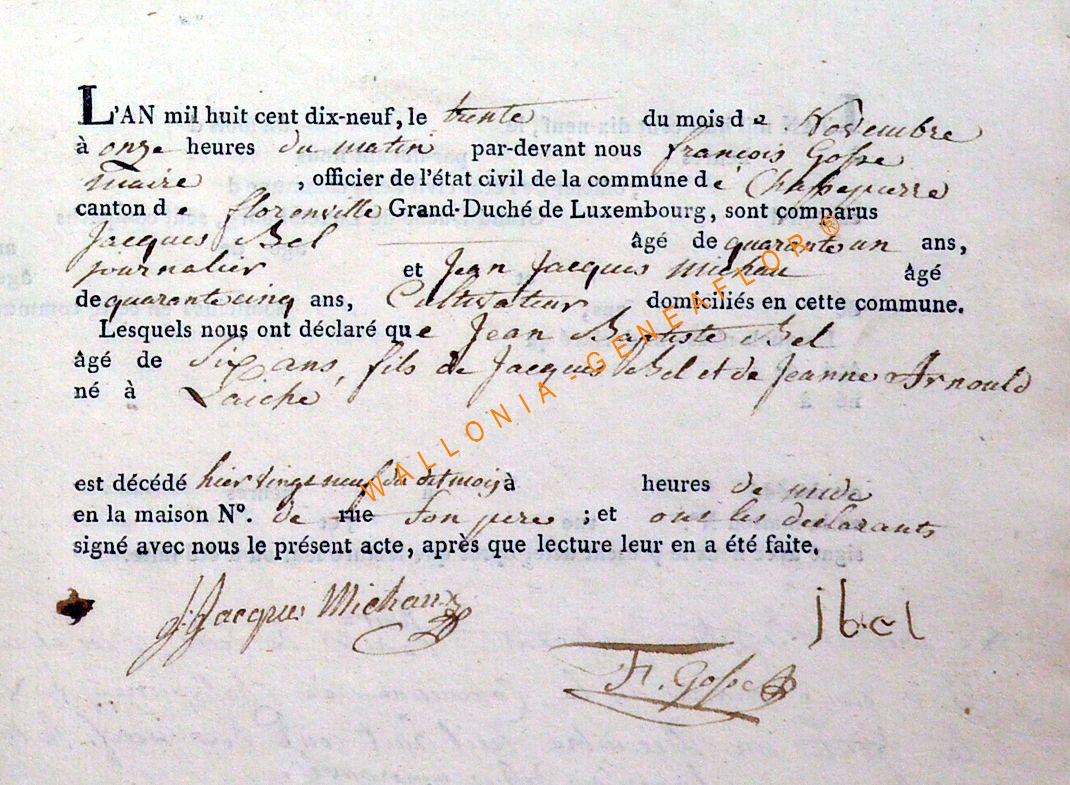 L'AN mil huit cent dix-neuf, le trente du mois de Novembre
à onze heures du matin par-devant nous françois Gosse
maire , officier de l'état civil de la commune de Chassepierre
canton de florenville Grand-Duché de Luxembourg, sont comparus
Jacques Bel âgé de quarante un ans,
journalier et Jean Jacques Michau âgé
de quarante cinq ans, Cultivateur domiciliés en cette commune.
Lesquels nous ont déclaré que Jean Baptiste Bel
âgé de Six ans, fils de Jacques Bel et de Jeanne Arnould
né à Laiche
est décédé hier vingt neuf du dit mois à heures de midi
en la maison N°. de rue Son pere ; et ont les déclarants
signé avec nous le présent acte, après que lecture leur en a été faite.
J. Jacques Michaux
jbel
F. Gosse
WALLONIA - GENEAFLOR ®